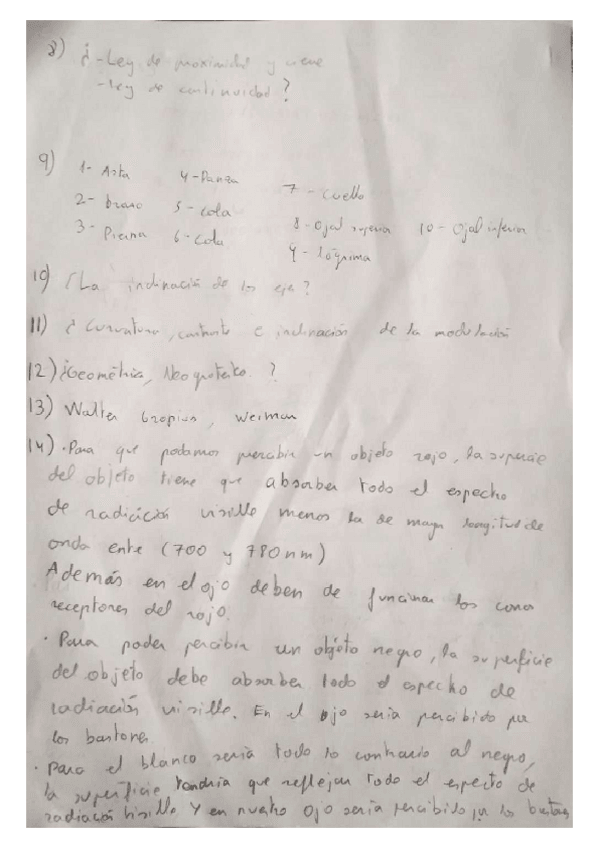 8) ¿ - Ley de proximidad y cierre
- Ley de continuidad ?
9) 1- Asta 4- Panza 7 - Cuello
2- brazo 5- cola 8- Ojal superior 10- Ojal inferior
3- Pierna 6- Cola 9- Lágrima
10) ¿La inclinación de los eje?
11) ¿ Curvatura, contraste e inclinación de la modulación
12) ¿Geométria, Neogrotesko ?
13) Walter Gropius, Weimar
14) · Para que podamos percibir un objeto rojo, la superficie
del objeto tiene que absorber todo el espectro
de radiación visible menos la de mayor longitud de
onda entre (700 y 780 nm)
Además en el ojo deben de funcionar los conos
receptores del rojo.
· Para poder percibir un objeto negro, la superficie
del objeto debe absorber todo el espectro de
radiación visible. En el ojo seria percibido por
los bastones.
· Para el blanco seria todo lo contrario al negro,
la superficie tendria que reflejar todo el espectro de
radiación visible y en nuestro ojo seria percibido por los bastones